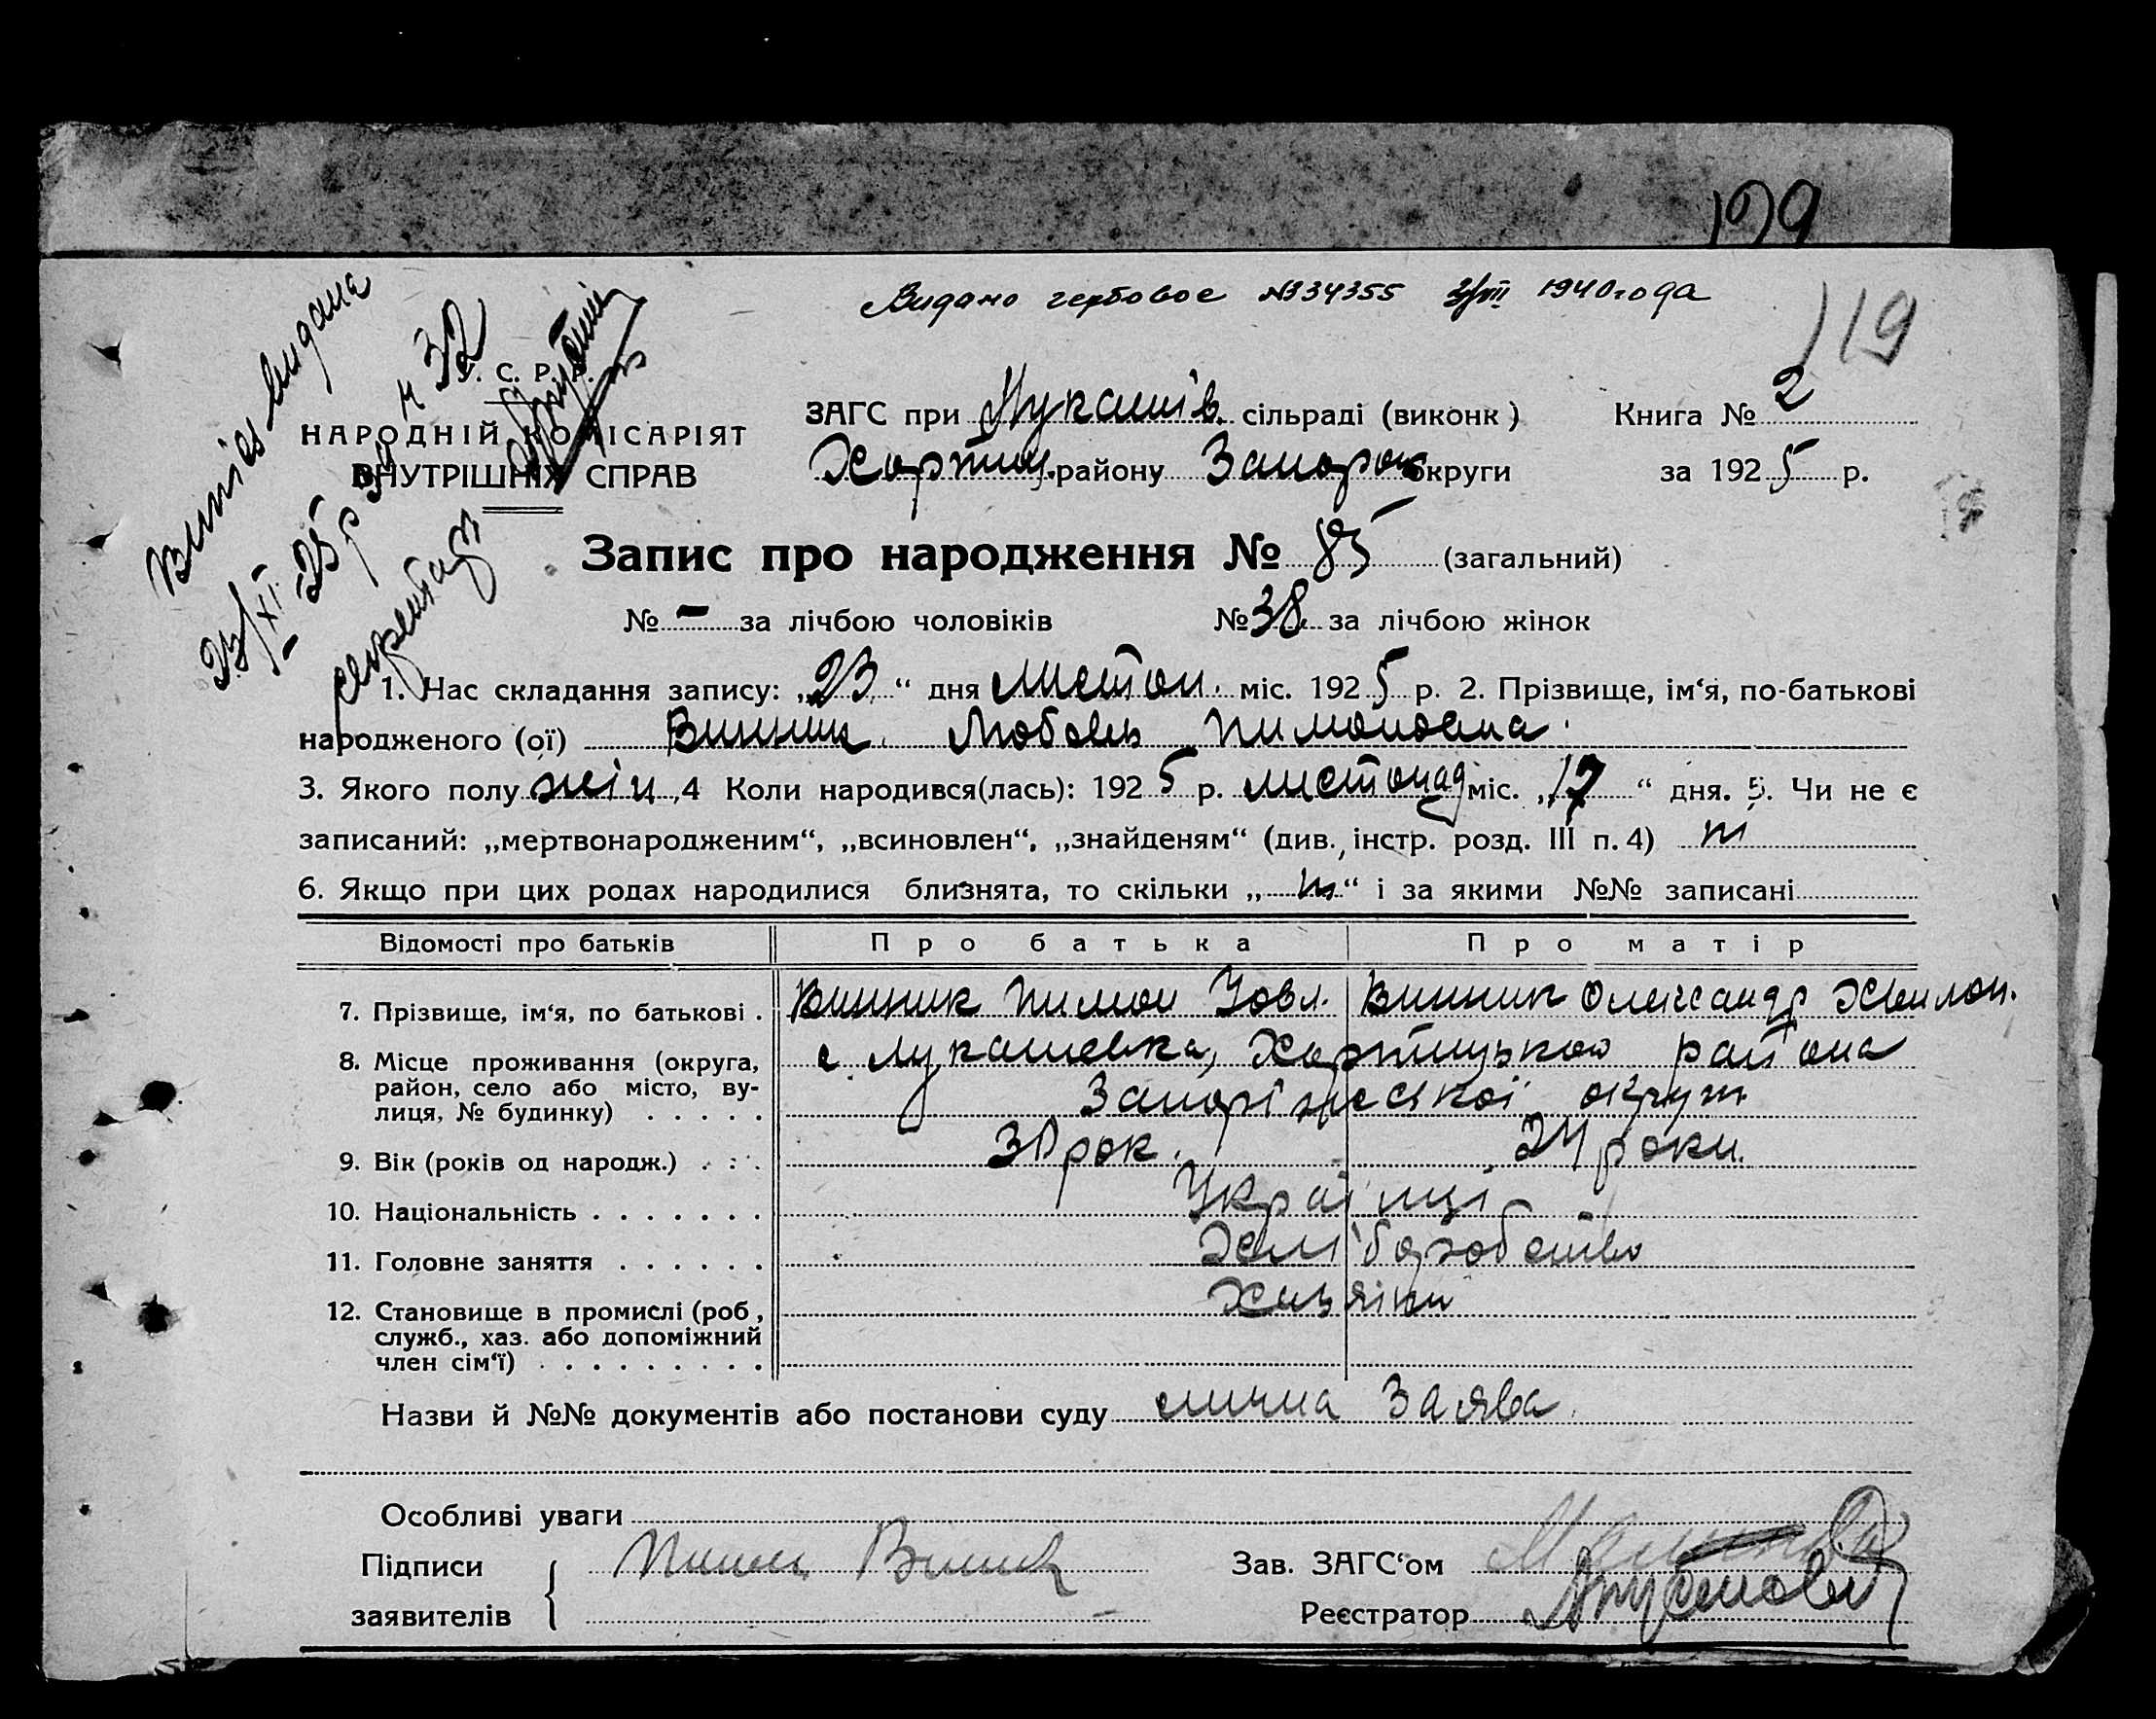 199
Видано гербовое №334355 3/VII 1940 года
119
Випись видана
23/XI-25 р. № 32
секретар
С. Р. Р.
НАРОДНІЙ КОМІСАРІЯТ
ВНУТРІШНІХ СПРАВ
ЗАГС при Лукашів. сільраді (виконк) Книга № 2
Хортиц. району Запорож округи за 1925 р.
Запис про народження № 85 (загальний)
№ - за лічбою чоловіків № 38 за лічбою жінок
1. Час складання запису: „23“ дня листоп. міс. 1925 р. 2. Прізвище, ім‘я, по-батькові
народженого (ої) Винник Любовь Пимоновна
3. Якого полу жін. 4 Коли народився(лась): 1925 р. листопад міс. „17“ дня. 5. Чи не є
записаний: „мертвонародженим“, „всиновлен“, „знайденям“ (див. інстр. розд. III п. 4) ні
6. Якщо при цих родах народилися близнята, то скільки „ні“ і за якими №№ записані
Відомості про батьків Про батька Про матір
7. Прізвище, ім‘я, по батькові . Винник Пимон Іовл. Винник Олександр Хвилон.
8. Місце проживання (округа, с. Лукашевка, Хортицького района
район, село або місто, ву- Запоріжської округи
лиця, № будинку) . . . . .
9. Вік (років од народж.) . . . 30 рок. 24 роки.
10. Національність . . . . . . . Українці
11. Головне заняття . . . . . . Хліборобство
12. Становище в промислі (роб, Хазяіни
служб., хаз. або допоміжний
член сім‘ї) . . . . . . . . .
Назви й №№ документів або постанови суду лична заява.
Особливі уваги
Підписи Пимон Винник Зав. ЗАГС‘ом
заявителів Реєстратор